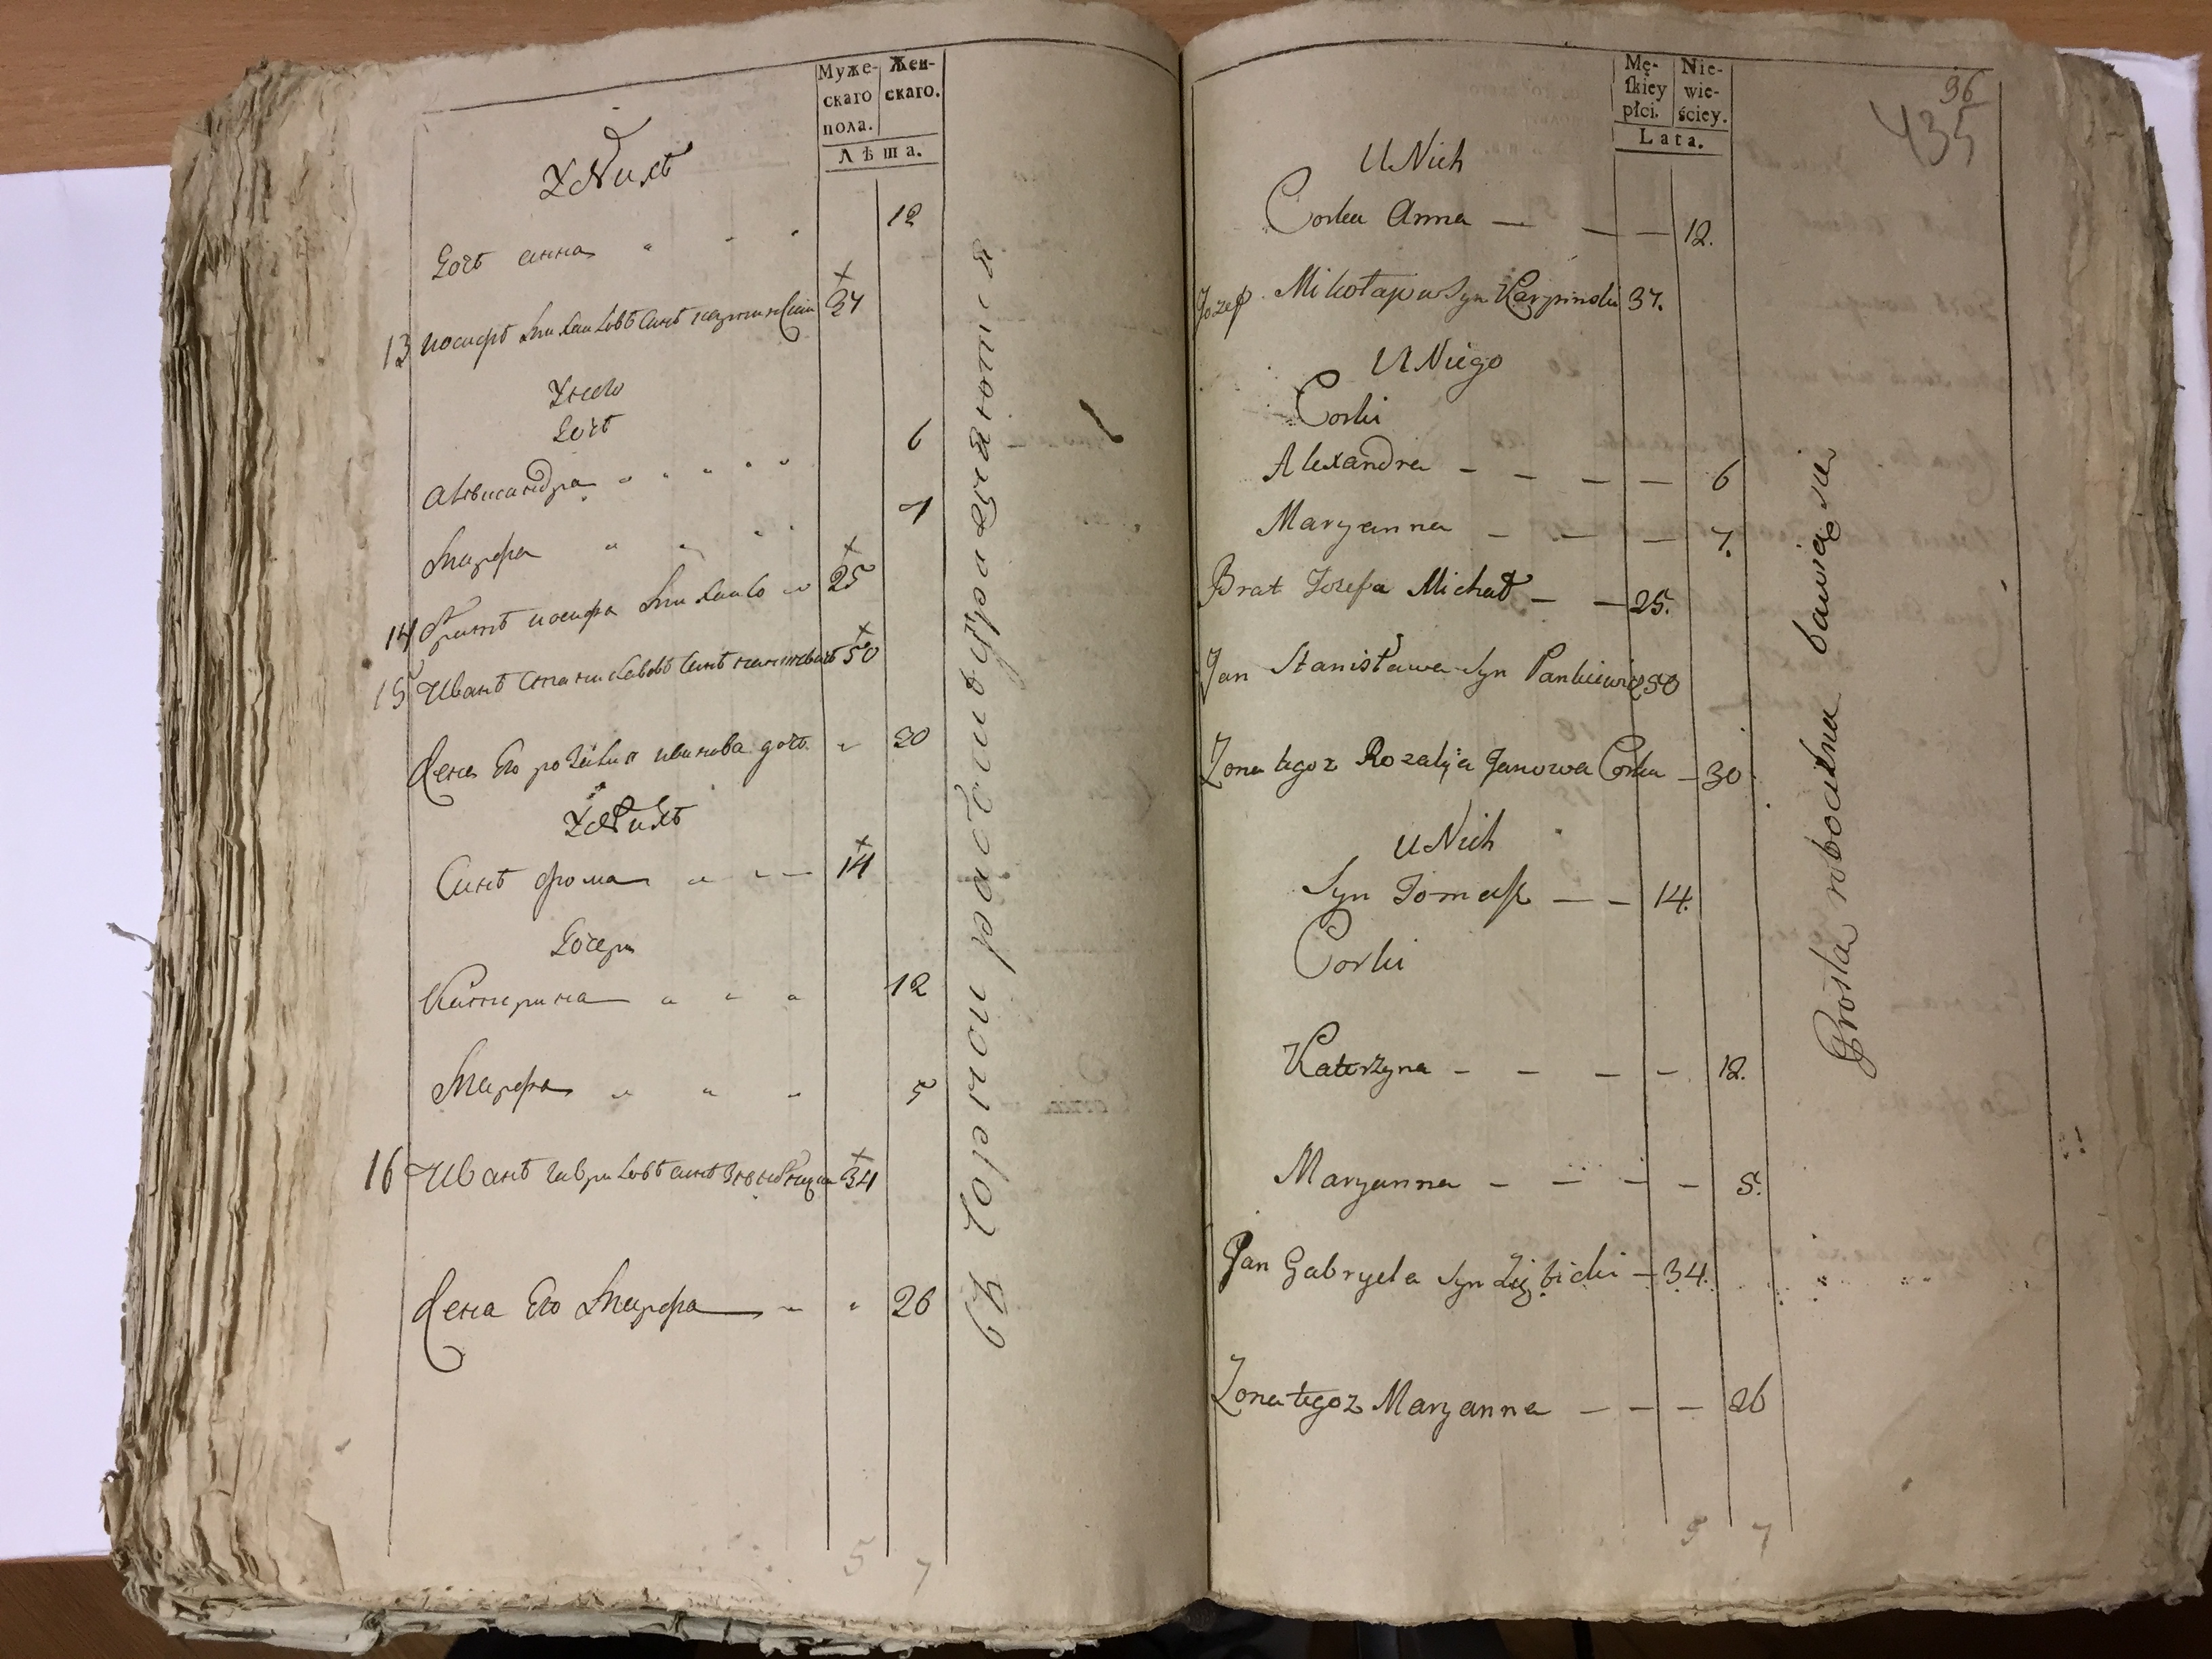 Муже-
скаго
пола.
Жен-
скаго.
Лѣта.
У Нихъ
Дочъ анна 12
13 иосифъ Николаевъ синъ карпинский 37
У него
Дочъ
александра 6
Марфа 7
14 братъ иосифа 25
15 Иванъ Станиславовъ синъ 50
Жена Его розалия иванова дочъ 30
У Нихъ
Синъ фома 14
Дочери
Катерина 12
Марфа 5
16 Иванъ гавриловъ синъ 34
Жена Его Марфа 26
5 7
96
435
Mę-
ſkiey
płci.
Nie-
wie-
ściey.
Lata.
U Nich
Corka Anna 12.
Jozef Mikołaja Syn Karpinski 37.
U Niego
Corki
Alexandra 6
Maryanna 7.
Brat Jozefa Michał 25.
Jan Stanisława Syn Pankiewicz 50
Zona tegoz Rozalija Janowa Corka 30
U Nich
Syn Tomaſz 14.
Corki
Katerzyna 12.
Maryanna 5.
Jan Gabryela Syn 34.
Zona tegoz Maryanna 26
Prostą robocizną bawiące sie
5 7